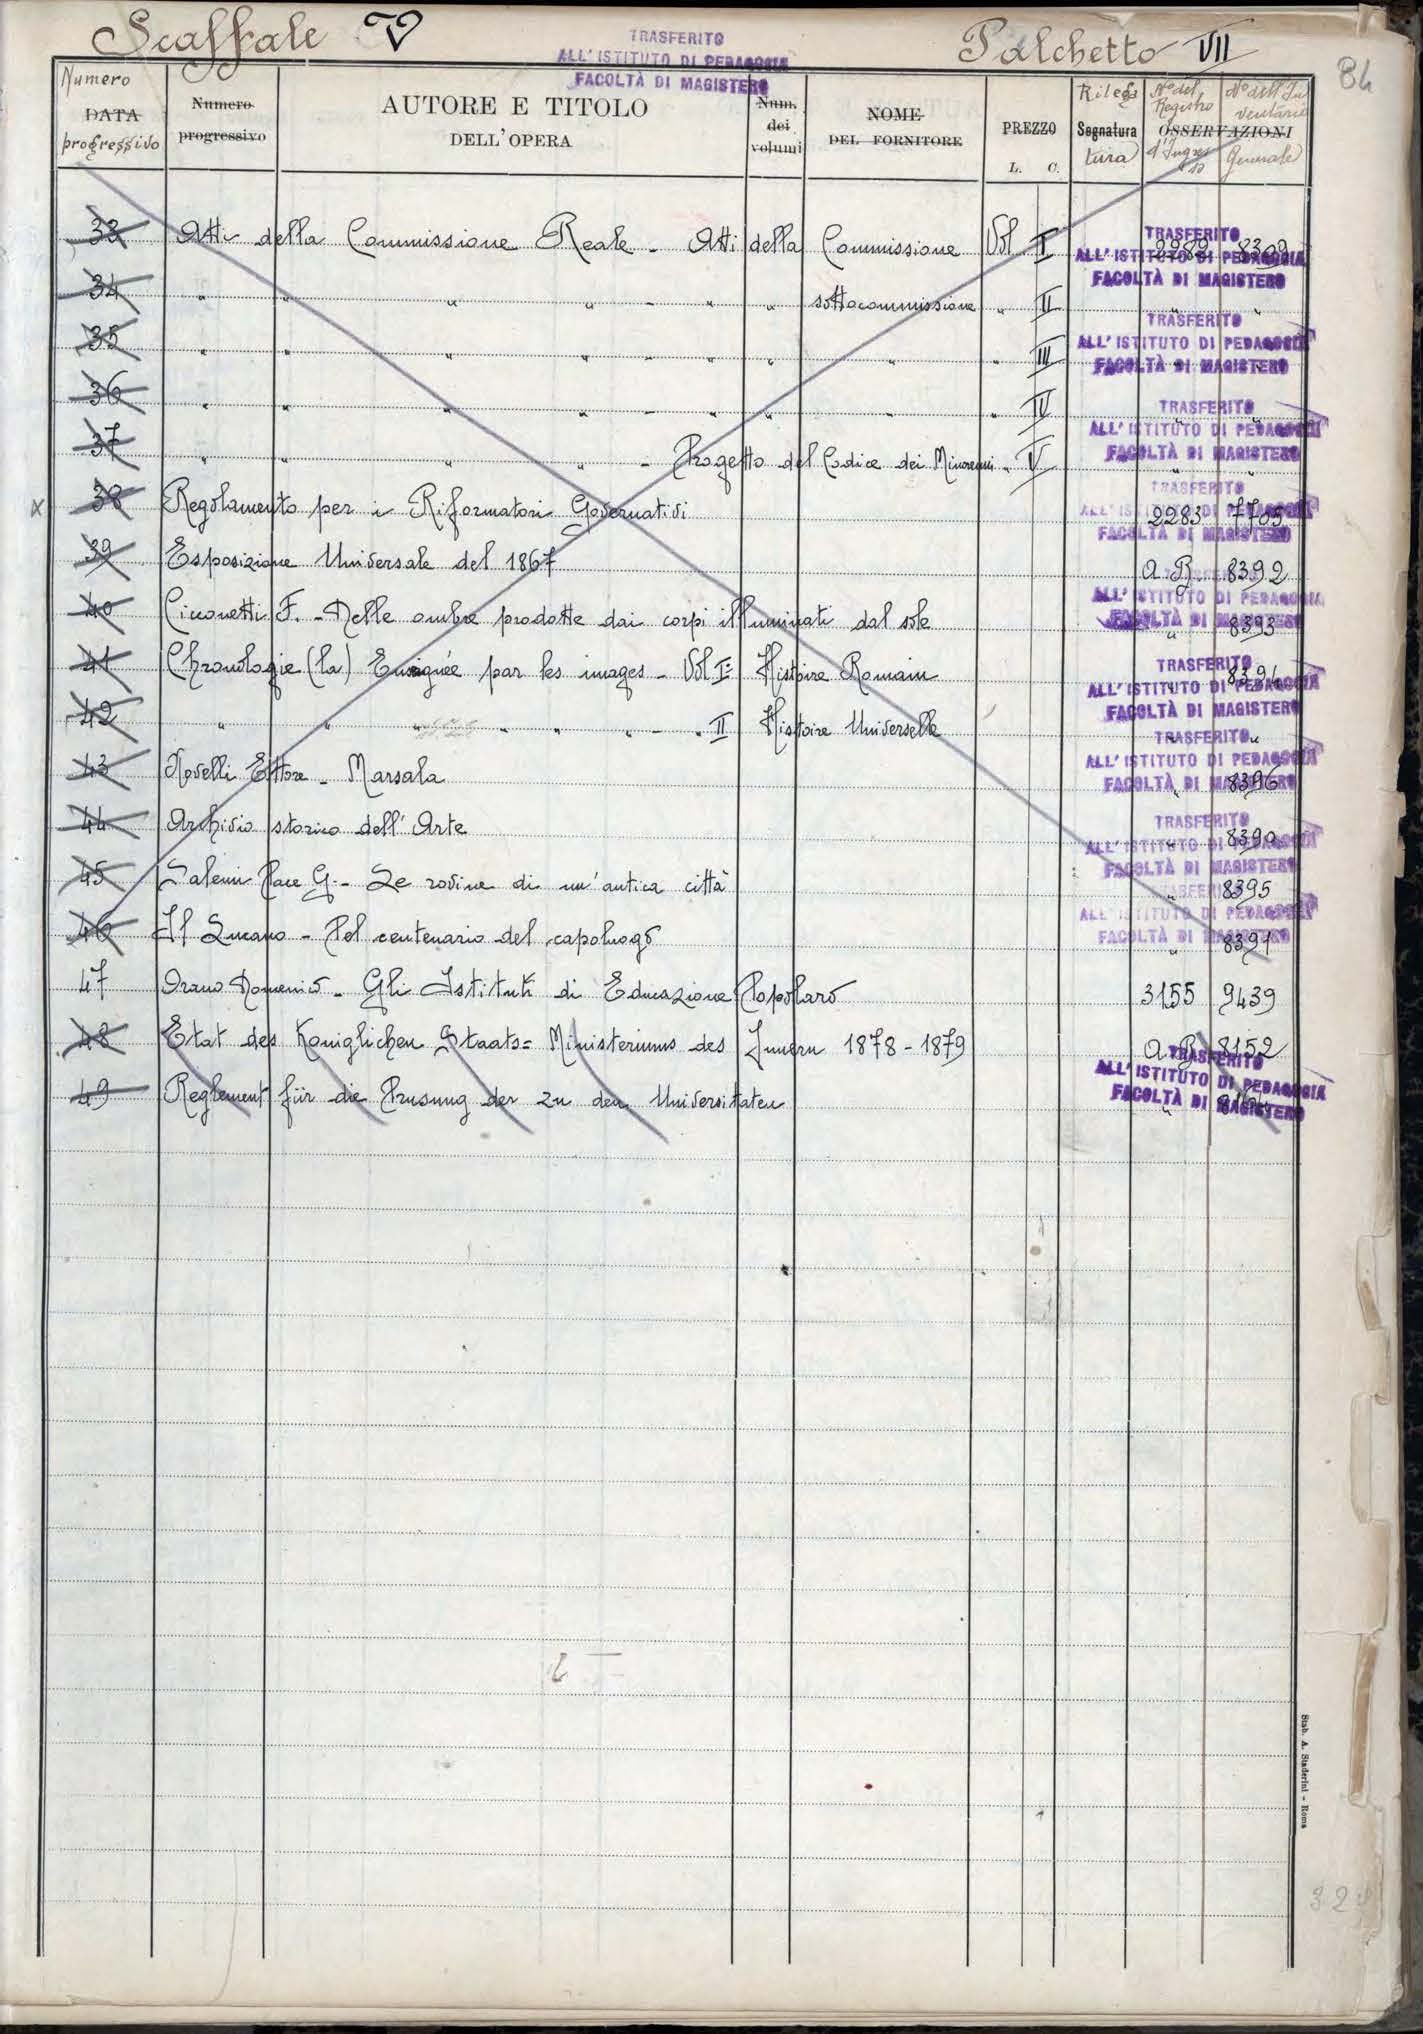 Scaffale V Palchetto VII
TRASFERITO
ALL' ISTITUTO DI PEDAGOGIA
FACOLTÀ DI MAGISTERO
84
Numero DATA progressivo
Numero progressivo
AUTORE E TITOLO DELL'OPERA
Num. dei volumi
NOME DEL FORNITORE
PREZZO L. C.
Rilega Segnatura tura
N° del Registro d'Ingresso
N° dell'Inventario Generale
OSSERVAZIONI
33 Atti della Commissione Reale - Atti della Commissione Vol. I 2282 8309
TRASFERITO
ALL' ISTITUTO DI PEDAGOGIA
FACOLTÀ DI MAGISTERO
34 " " " " - " " sottocommissione " II " "
TRASFERITO
ALL' ISTITUTO DI PEDAGOGIA
FACOLTÀ DI MAGISTERO
35 " " " " - " " " " III " "
36 " " " " - " " " " IV " "
TRASFERITO
ALL' ISTITUTO DI PEDAGOGIA
FACOLTÀ DI MAGISTERO
37 " " " " - Progetto del Codice dei Minorenni " V " "
TRASFERITO
ALL' ISTITUTO DI PEDAGOGIA
FACOLTÀ DI MAGISTERO
x 38 Regolamento per i Riformatori Governativi 2283 7705
39 Esposizione Universale del 1867 A.R. 8392
ALL' ISTITUTO DI PEDAGOGIA
FACOLTÀ DI MAGISTERO
40 Cicconetti F. - Delle ombre prodotte dai corpi illuminati dal sole " 8393
41 Chronologie (la) Enseignée par les images - Vol I: Histoire Romain " 8394
TRASFERITO
ALL' ISTITUTO DI PEDAGOGIA
FACOLTÀ DI MAGISTERO
42 " " " " " " - " II Histoire Universelle " "
TRASFERITO
ALL' ISTITUTO DI PEDAGOGIA
FACOLTÀ DI MAGISTERO
43 Novelli Ettore - Marsala " 8396
44 Archivio storico dell'Arte " 8390
TRASFERITO
ALL' ISTITUTO DI PEDAGOGIA
FACOLTÀ DI MAGISTERO
45 Salemi Pace G. - Le rovine di un'antica città " 8395
TRASFERITO
ALL' ISTITUTO DI PEDAGOGIA
FACOLTÀ DI MAGISTERO
46 Il Lucano - Pel centenario del capoluogo " 8391
47 Orano Domenico - Gli Istituti di Educazione Popolare 3155 9439
48 Etat des Koniglichen Staats= Ministeriums des Innern 1878 - 1879 A.R. 8152
TRASFERITO
ALL' ISTITUTO DI PEDAGOGIA
FACOLTÀ DI MAGISTERO
49 Reglement für die Prusung der zu den Universitaten "
Stab. A. Staderini - Roma